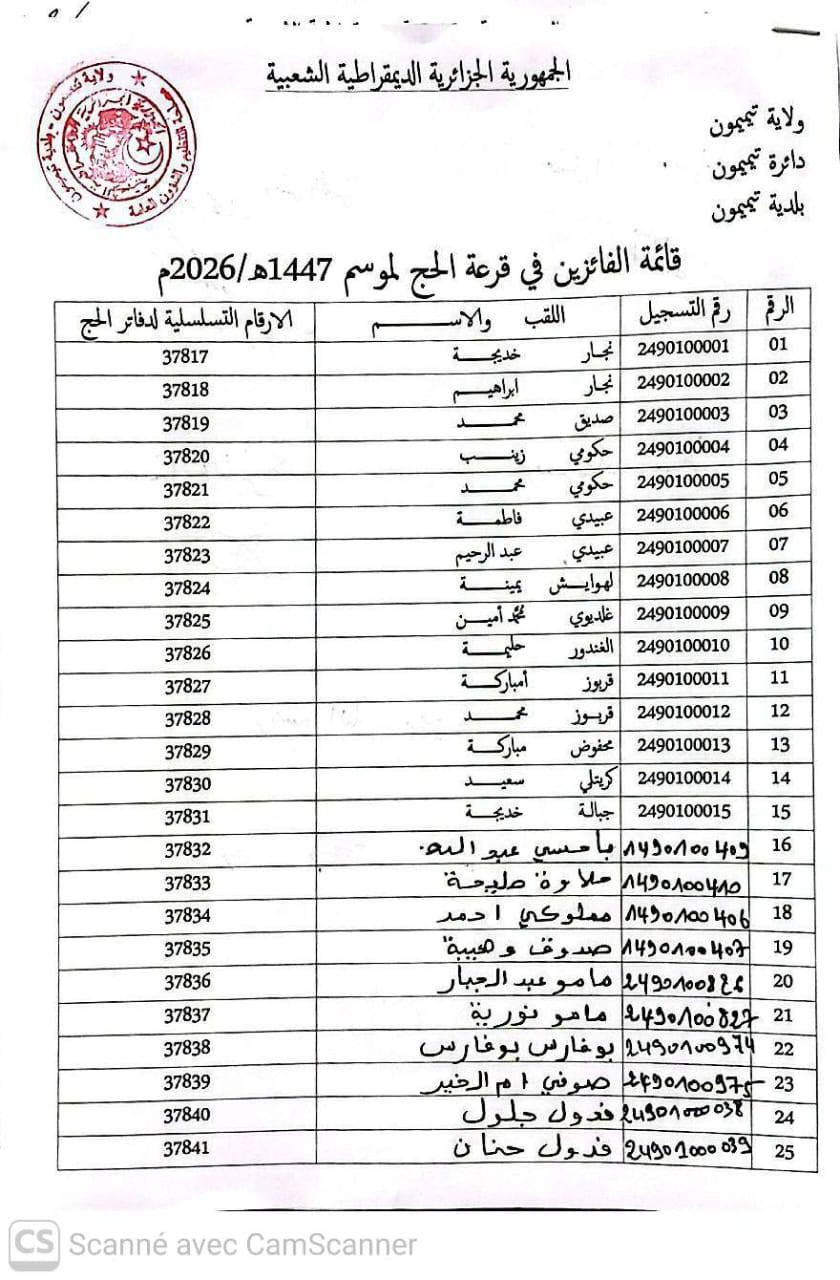 الجمهورية الجزائرية الديمقراطية الشعبية
ولاية تيميمون
دائرة تيميمون
بلدية تيميمون
قائمة الفائزين في قرعة الحج لموسم 1447هـ/2026م
الرقم رقم التسجيل اللقب والاســـــم الارقام التسلسلية لدفاتر الحج
01 2490100001 نجـار خديجـــة 37817
02 2490100002 نجـار ابراهيـــم 37818
03 2490100003 صديق محمــــد 37819
04 2490100004 حكومي زينـــب 37820
05 2490100005 حكومي محمــــد 37821
06 2490100006 عبيدي فاطمــة 37822
07 2490100007 عبيدي عبد الرحيم 37823
08 2490100008 لهوايــش يمينــة 37824
09 2490100009 غلديوي محمد أميــن 37825
10 2490100010 الغندور حليمـــة 37826
11 2490100011 قربوز أمباركــة 37827
12 2490100012 قربـوز محمــــد 37828
13 2490100013 محفوض مباركــة 37829
14 2490100014 كريتلي سعيــد 37830
15 2490100015 جبالـة خديجــة 37831
16 1490100409 باحسي عبد الله 37832
17 1490100410 حلاوة مليحة 37833
18 1490100406 مملوكي احمد 37834
19 1490100407 صدوق وهيبة 37835
20 2490100826 مامو عبد الجبار 37836
21 2490100827 مامو نورية 37837
22 2490100974 بوفارس بوفارس 37838
23 2490100975 صوفي ام الخير 37839
24 2490100038 قدول جلول 37840
25 2490100039 قدول حنان 37841
CS Scanné avec CamScanner